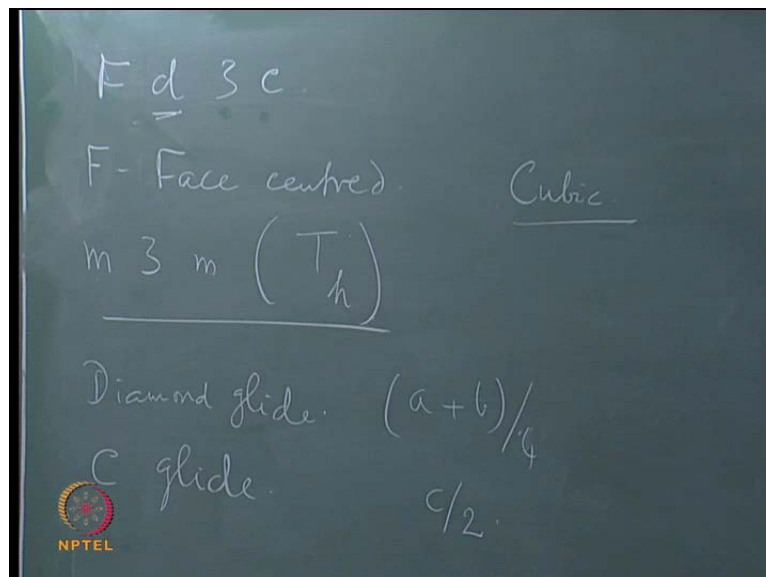 F d 3 c.
F - Face centred. Cubic.
m 3 m (Th)
Diamond glide. (a + b)/4
C glide. c/2.
NPTEL